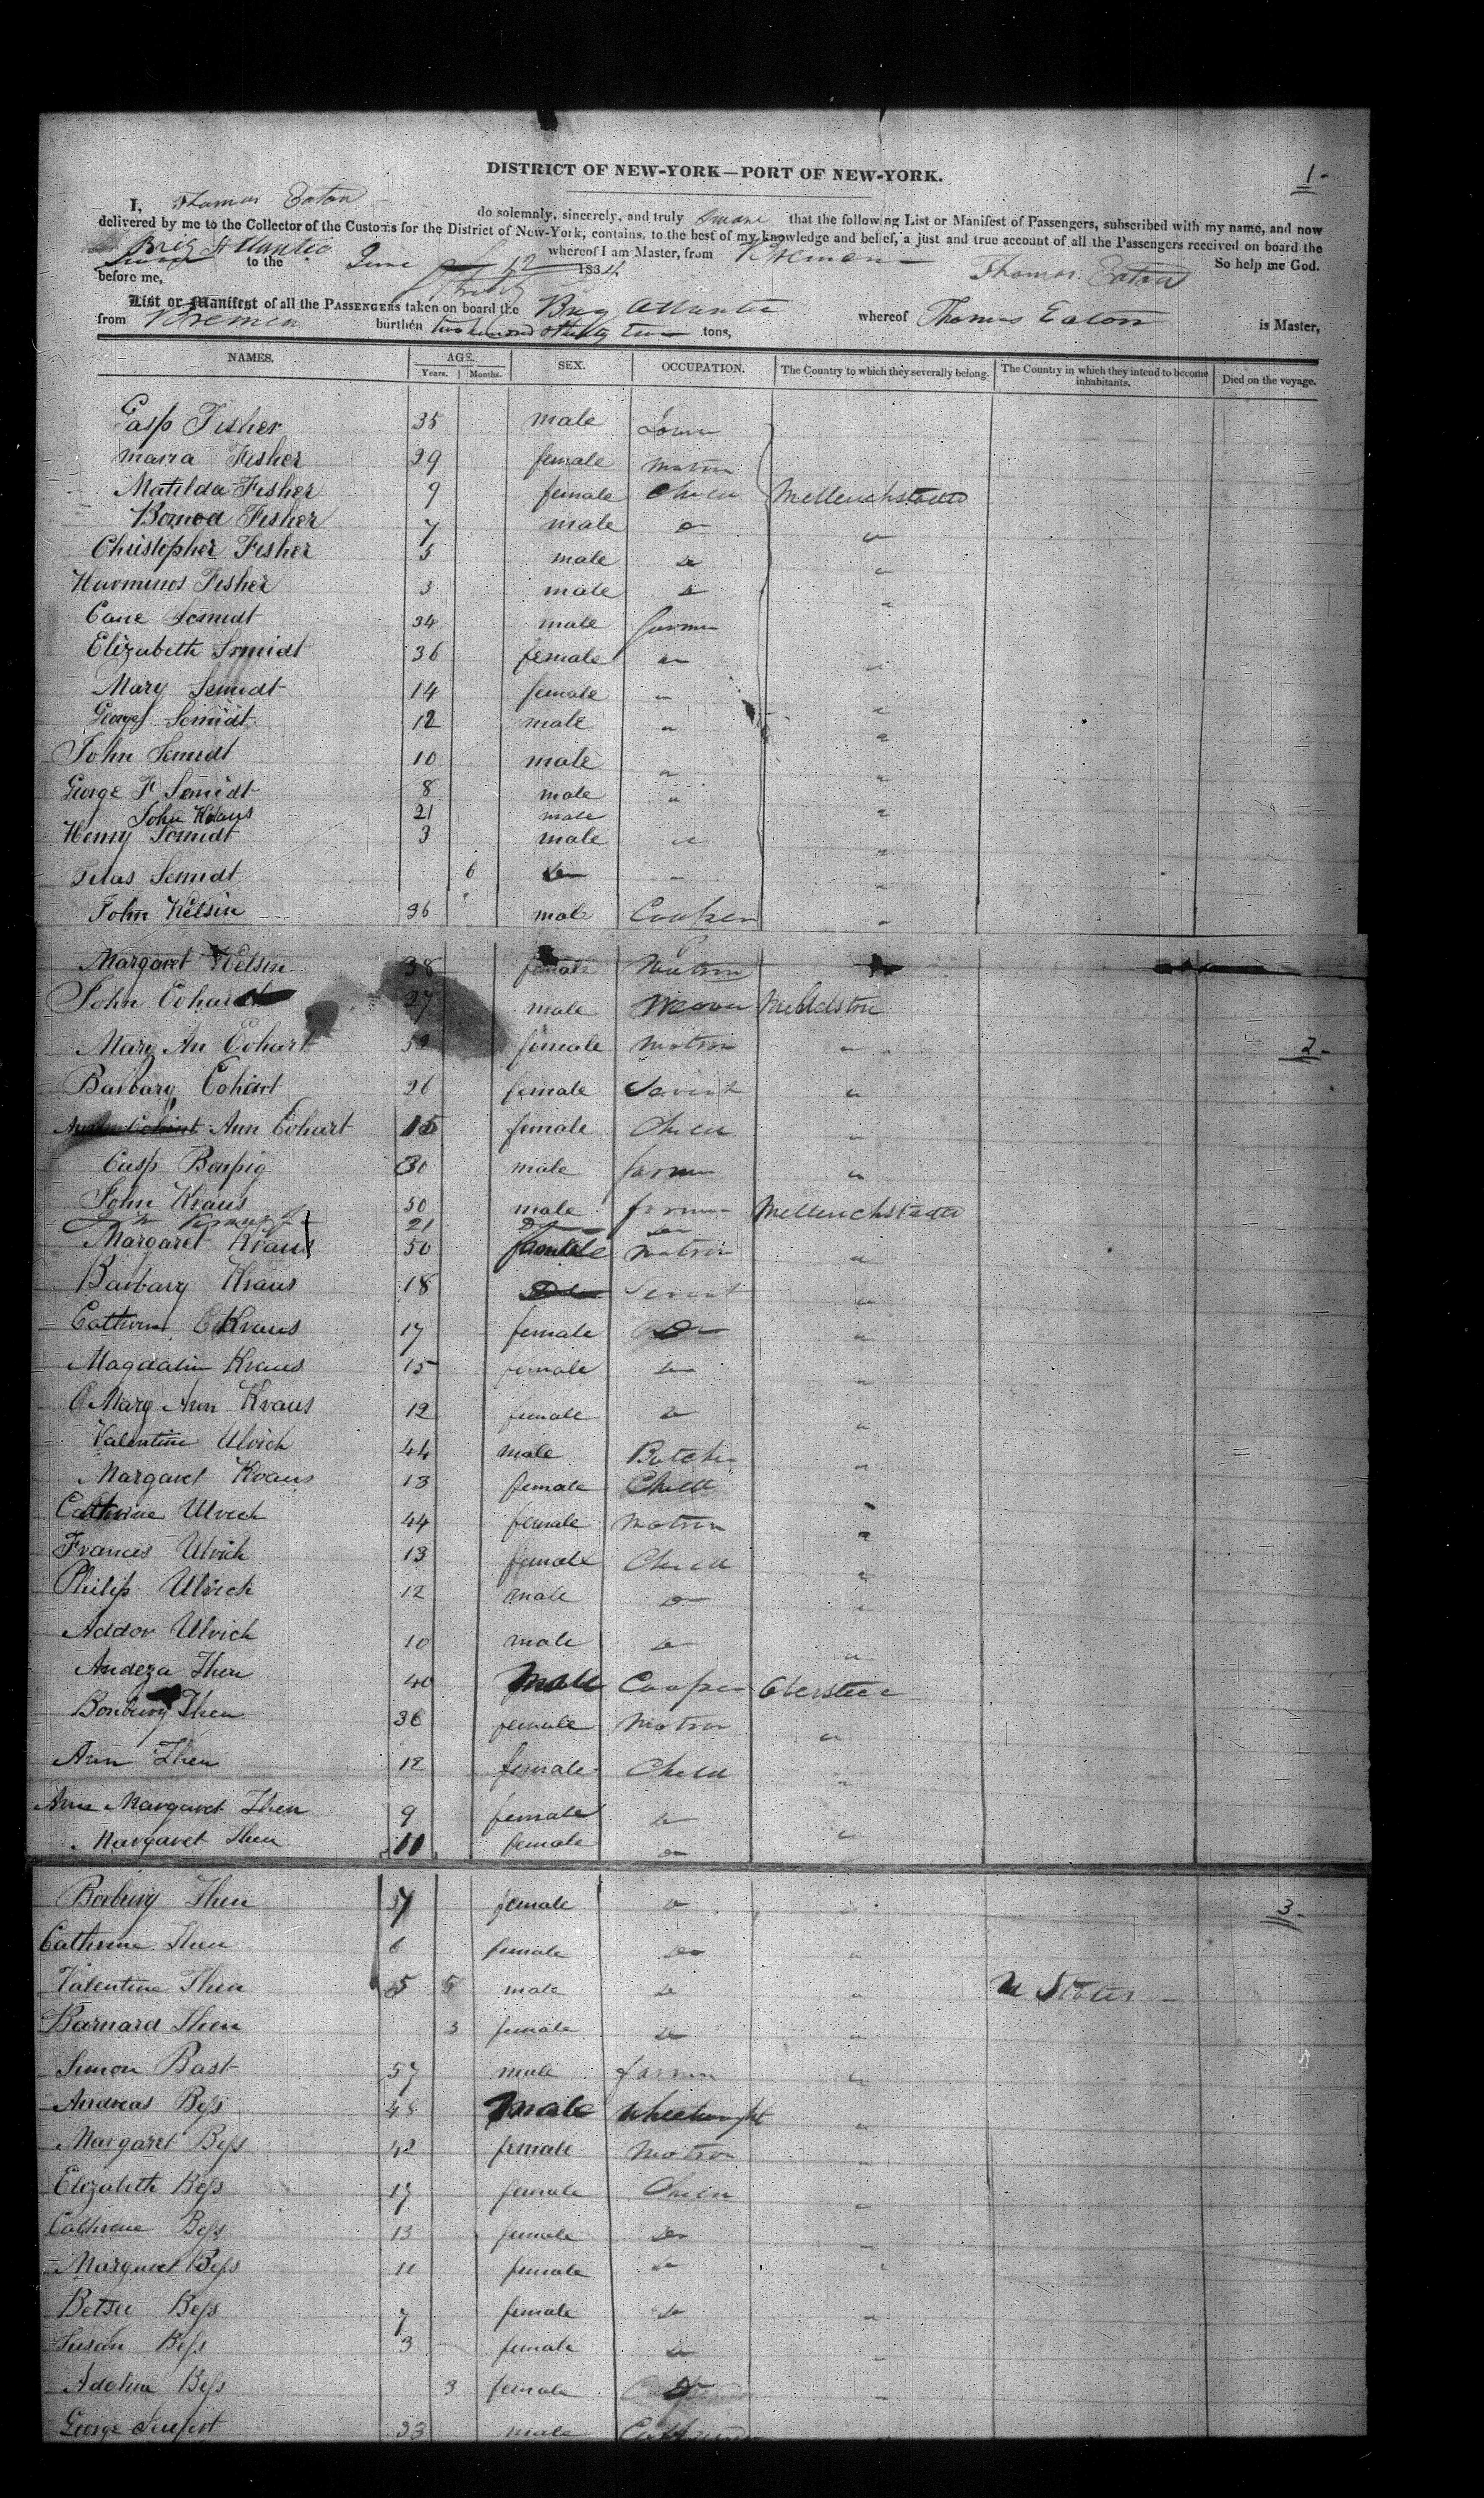 DISTRICT OF NEW-YORK—PORT OF NEW-YORK.
1-
I, Thomas Eaton do solemnly, sincerely, and truly swear that the following List or Manifest of Passengers, subscribed with my name, and now
delivered by me to the Collector of the Customs for the District of New-York, contains, to the best of my knowledge and belief, a just and true account of all the Passengers received on board the
Brig Atlantic whereof I am Master, from Bremen
to the June 12 1834 Thomas Eaton So help me God.
before me,
List or Manifest of all the PASSENGERS taken on board the Brig Atlantic whereof Thomas Eaton is Master,
from Bremen burthen two hundred & thirty two tons,
NAMES. AGE. Years. Months. SEX. OCCUPATION. The Country to which they severally belong. The Country in which they intend to become inhabitants. Died on the voyage.
Casp Fisher 35 male
Maria Fisher 39 female matron
Matilda Fisher 9 female Child Mellerichstadt
Fisher 7 male do "
Christopher Fisher 5 male do "
Fisher 3 male do "
Semidt 34 male farmer
Elizabeth Semidt 36 female " "
Mary Semidt 14 female " "
George Semidt 12 male " "
John Semidt 10 male " "
George F Semidt 8 male " "
John Kraus 21 male
Henry Semidt 3 male " "
Semidt 6 do " "
John Welsin 36 male Cooper "
Margaret Welsin 38 female Matron
John Eohart 27 male Weaver
Mary An Eohart female Matron "
2-
Barbary Eohart 26 female Servent "
Ann Eohart 15 female Child "
Casp 30 male farmer "
John Kraus 50 male farmer Mellerichstadt
21 do do
Margaret Kraus 50 female matron "
Barbary Kraus 18 Do Servent "
Cathrine Kraus 17 female Do "
Magdalin Kraus 15 female do "
Mary Ann Kraus 12 female do "
Valentine Ulrich 44 male Butcher "
Margaret Kraus 13 female Child
Cathrine Ulrich 44 female Matron "
Francis Ulrich 13 female Child "
Philip Ulrich 12 male do "
Addor Ulrich 10 male do "
Andeza Then 40 male Cooper
Then 36 female Matron "
Ann Then 12 female Child "
Ann Margaret Then 9 female do "
Margaret Then 11 female do
Then 7 female do "
3-
Cathrine Then 6 female do "
Valentine Then 5 5 male do " U States
Barnard Then 3 female do "
Simon Bast 57 male farmer "
Andreas Beſs 48 male Wheelwright "
Margaret Beſs 42 female Matron "
Elizabeth Beſs 17 female Child "
Cathrine Beſs 13 female do "
Margaret Beſs 11 female do "
Betsey Beſs 7 female do "
Susan Beſs 3 female do "
Beſs 3 female do "
George Seufert 33 male